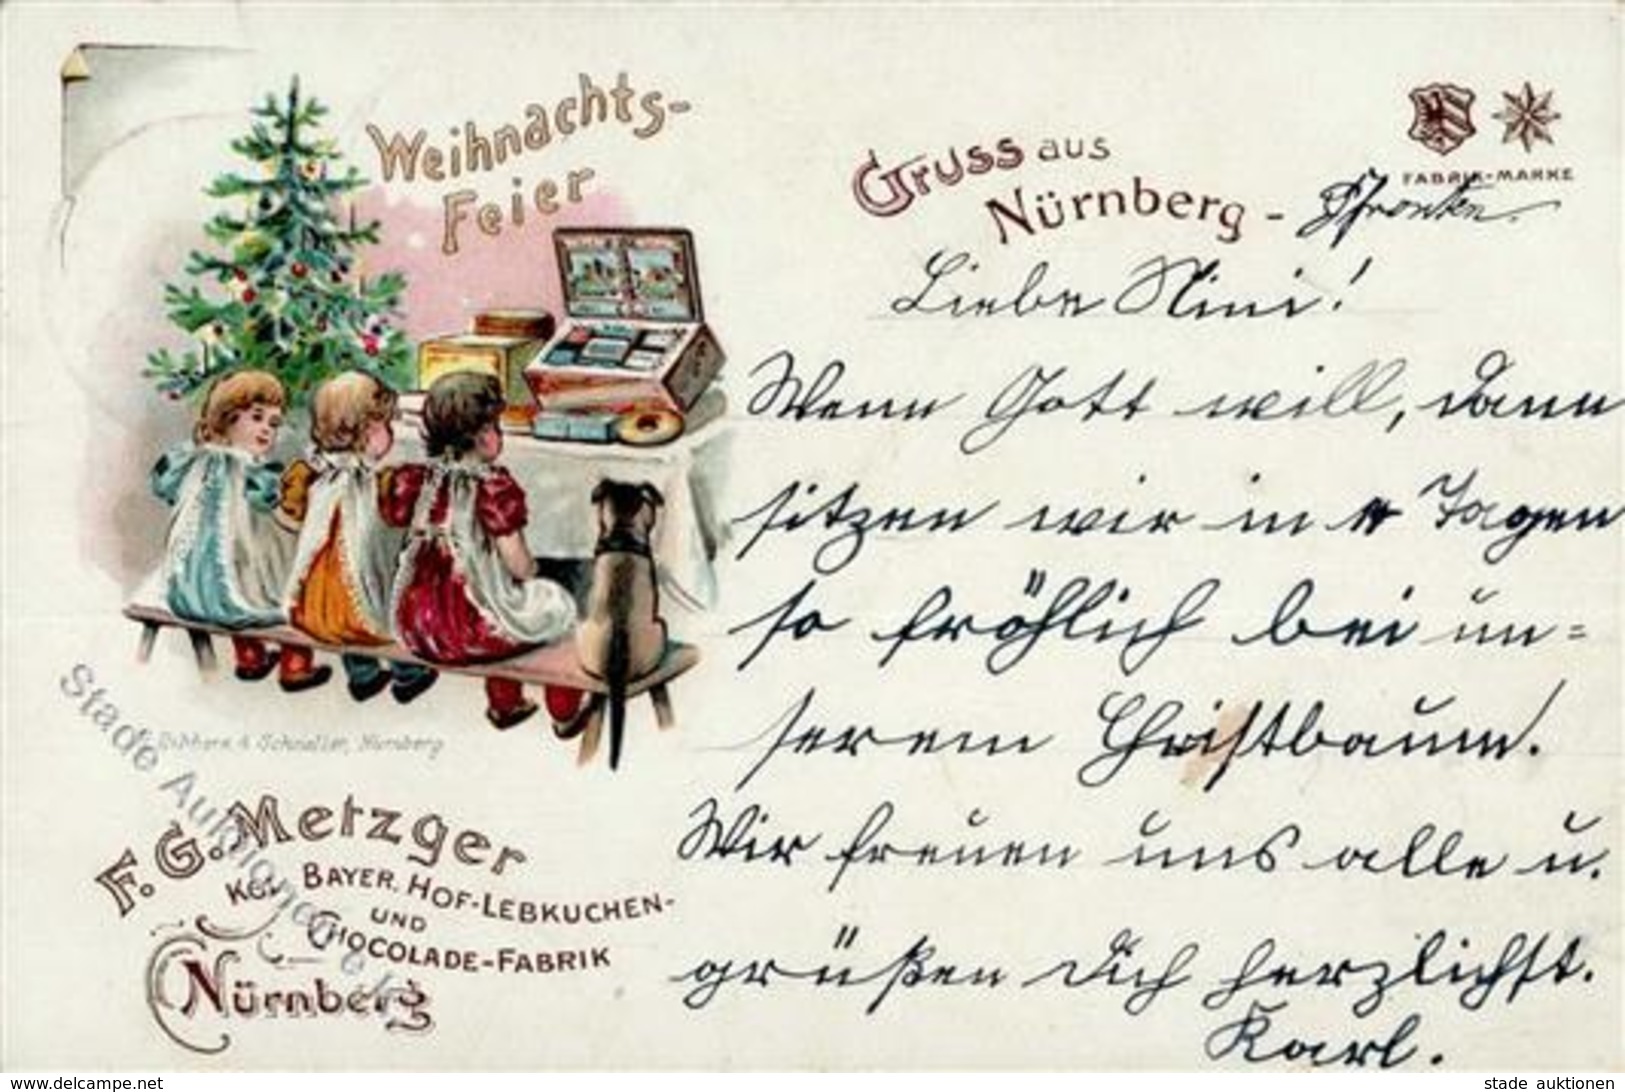 Weihnachts-
Feier
Gruss aus
Nürnberg -
FABRIK-MARKE
Liebe Nini!
Wenn Gott will, dann
sitzen wir in Tagen
so fröhlich bei un=
serem Christbaum.
Wir freuen uns alle u.
grüßen Dich herzlichst.
Karl.
Schneller, Nürnberg
F. G. Metzger
KGL. BAYER. HOF-LEBKUCHEN-
UND
CHOCOLADE-FABRIK
Nürnberg
Stade Auktionen
www.delcampe.net
stade auktionen